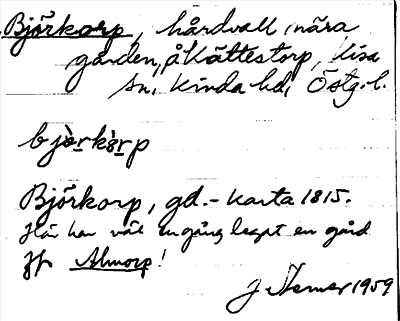 Björkorp, hårdvall nära
gården, å Kättestorp, Kisa
sn, Kinda hd, Östg. l.
bjò̱rkò̱rp
Björkorp, gd. - karta 1815.
Här har väl en gång legat en gård
jfr Almorp!
J Ney 1959